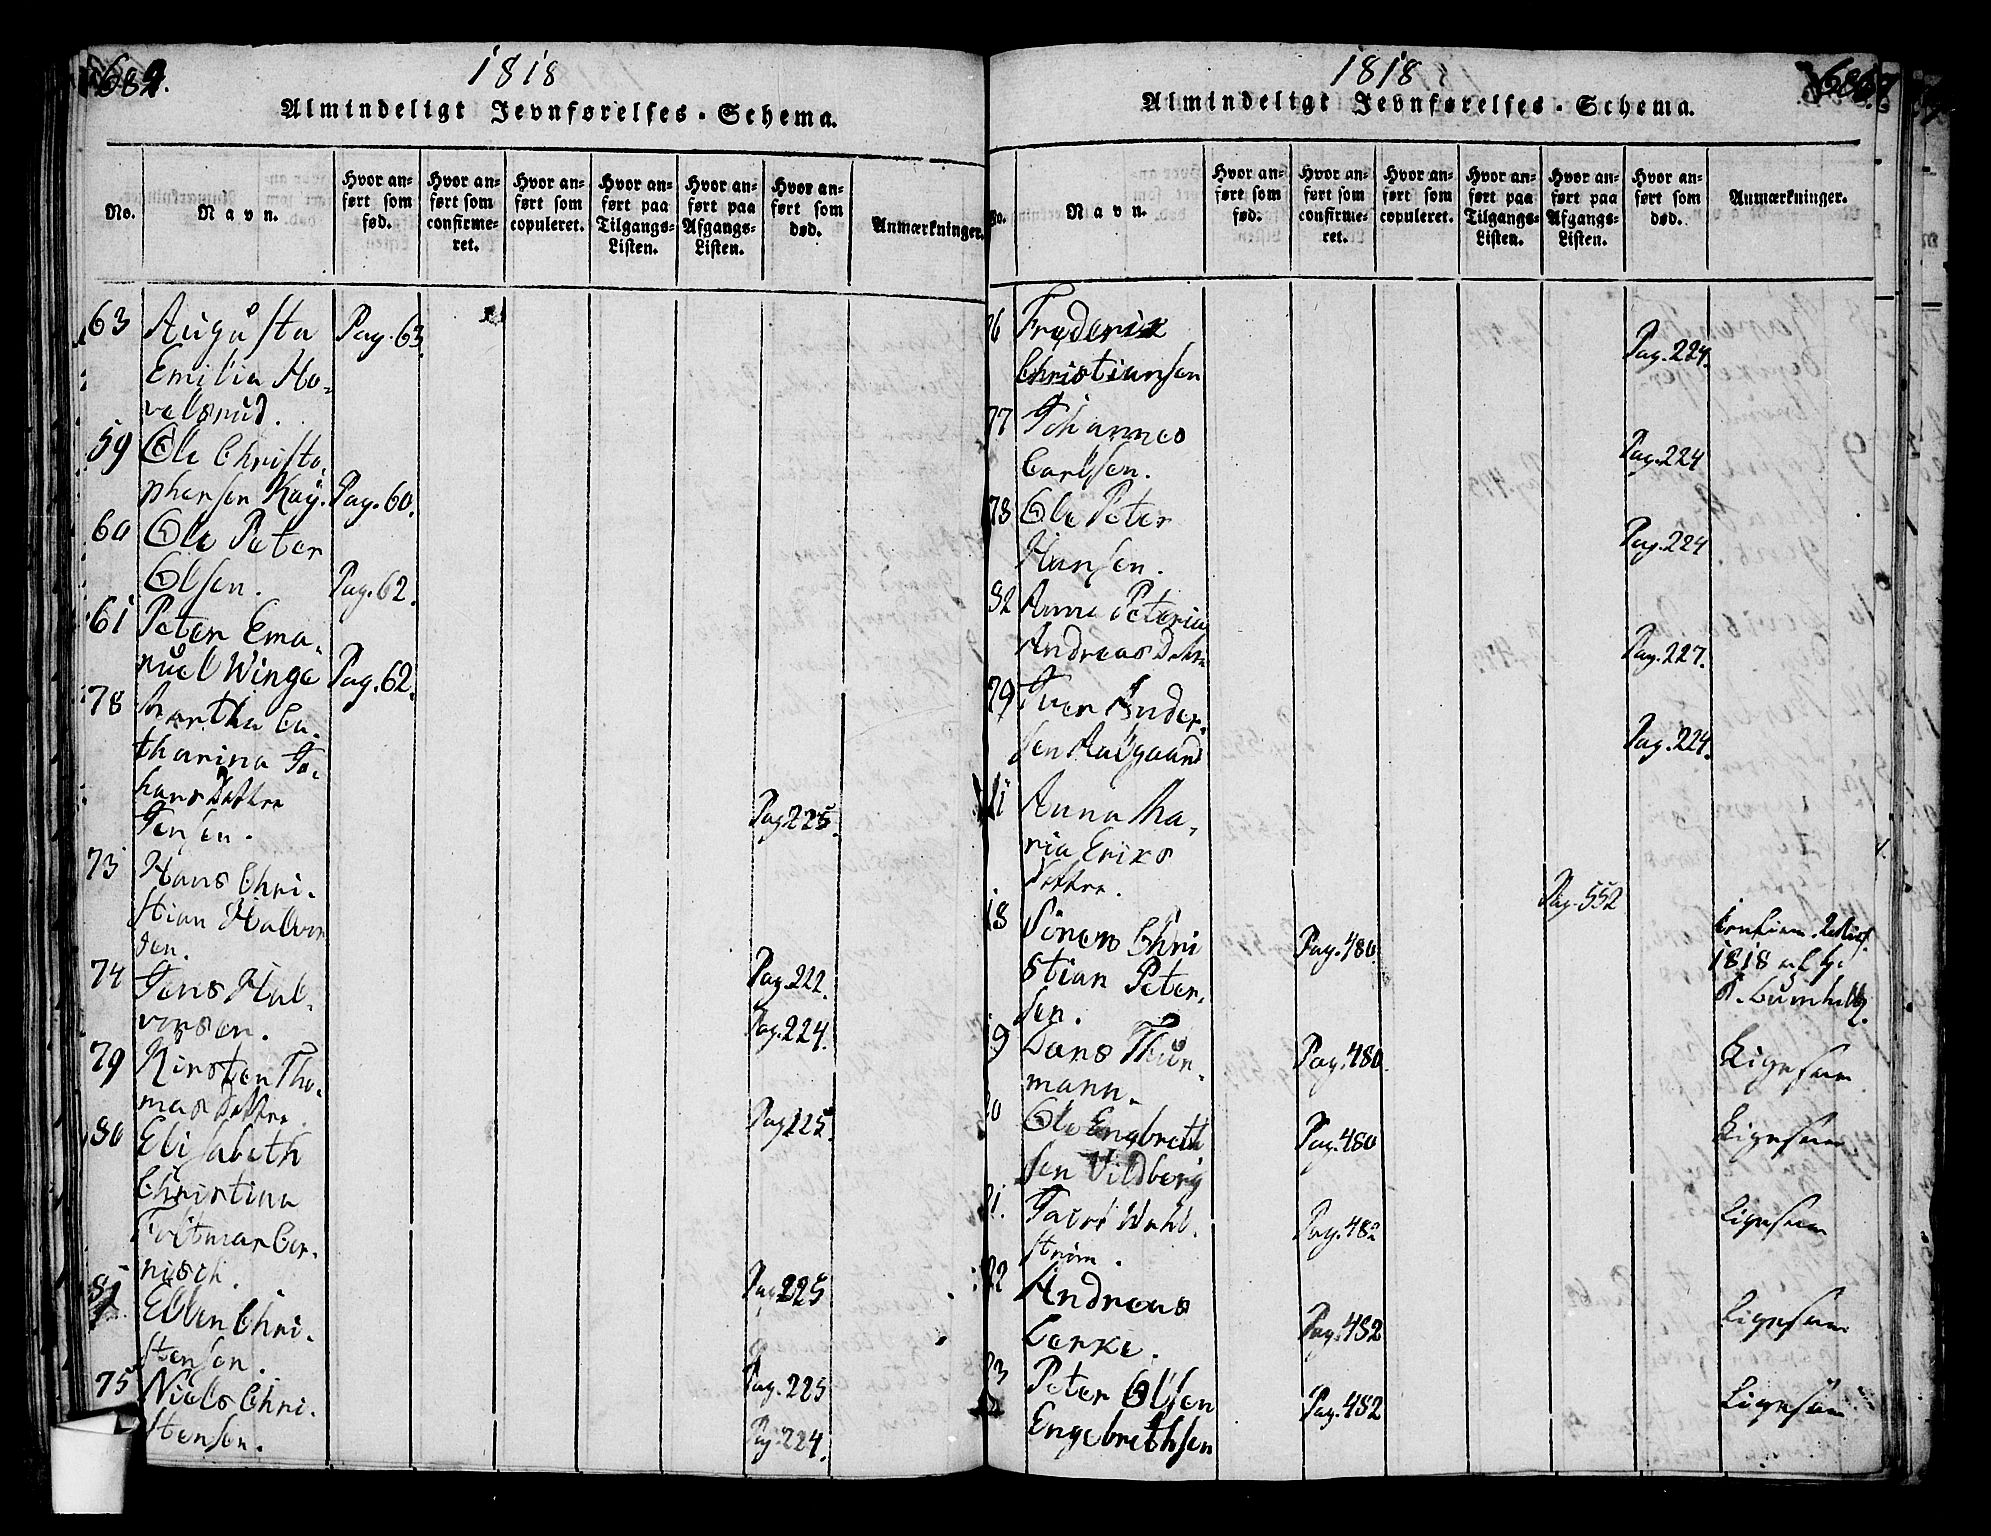 1818
Almindeligt Jevnførelses-Schema.
No.
Navn.
Hvor anført som fød.
Hvor anført som confirmeret.
Hvor anført som copuleret.
Hvor anført paa Tilgangs-Listen.
Hvor anført paa Afgangs-Listen.
Hvor anført som død.
Anmærkninger.
63 Augusta Pag. 63.
Emilia Ho-
velsrud.
59 Ole Christo-
phersen Kaÿ. Pag. 60.
60 Ole Peter
Olsen. Pag. 62.
61 Peter Ema-
nuel Winge Pag. 62.
78 Martha Ca-
tharina Jo-
hansdatter
Jensen. Pag. 225.
73 Hans Chri-
stian Halvor
sen. Pag. 222.
74 Jens Hal-
vorsen. Pag. 224.
79 Kirsten Tho-
masdatter. Pag. 225.
80 Elisabeth
Christina
Cor-
nisch. Pag. 225
81 Ellen Chri-
stensen. Pag. 225
75 Niels Chri-
stensen. Pag. 224.
1818
Almindeligt Jevnførelses-Schema.
No.
Navn.
Hvor anført som fød.
Hvor anført som confirmeret.
Hvor anført som copuleret.
Hvor anført paa Tilgangs-Listen.
Hvor anført paa Afgangs-Listen.
Hvor anført som død.
Anmærkninger.
76 Frederik Pag. 224.
Christiansen
77 Johannes
Carlsen. Pag. 224
78 Ole Peter
Hansen. Pag. 224
82 Anne Peteria
Andreasdatter Pag. 227.
79 Iver Ander-
sen Aalgaard Pag. 224.
11 Anna Ma-
ria Eriks
datter. Pag. 552
18 Sören Chri Pag. 480.
stian Peter-
sen.
1818 af Hr.
P. Lumholtz.
19 Lars Thur- Pag. 480. Ligesaa
mann.
20 Ole Engebreth Pag. 480 Ligesaa
sen Vildberg
21. Wahl- Pag. 482 Ligesaa
ström.
22 Andreas
Lerke. Pag. 482 Ligesaa
23 Peter Olsen Pag. 482 Ligesaa
Engebrethsen